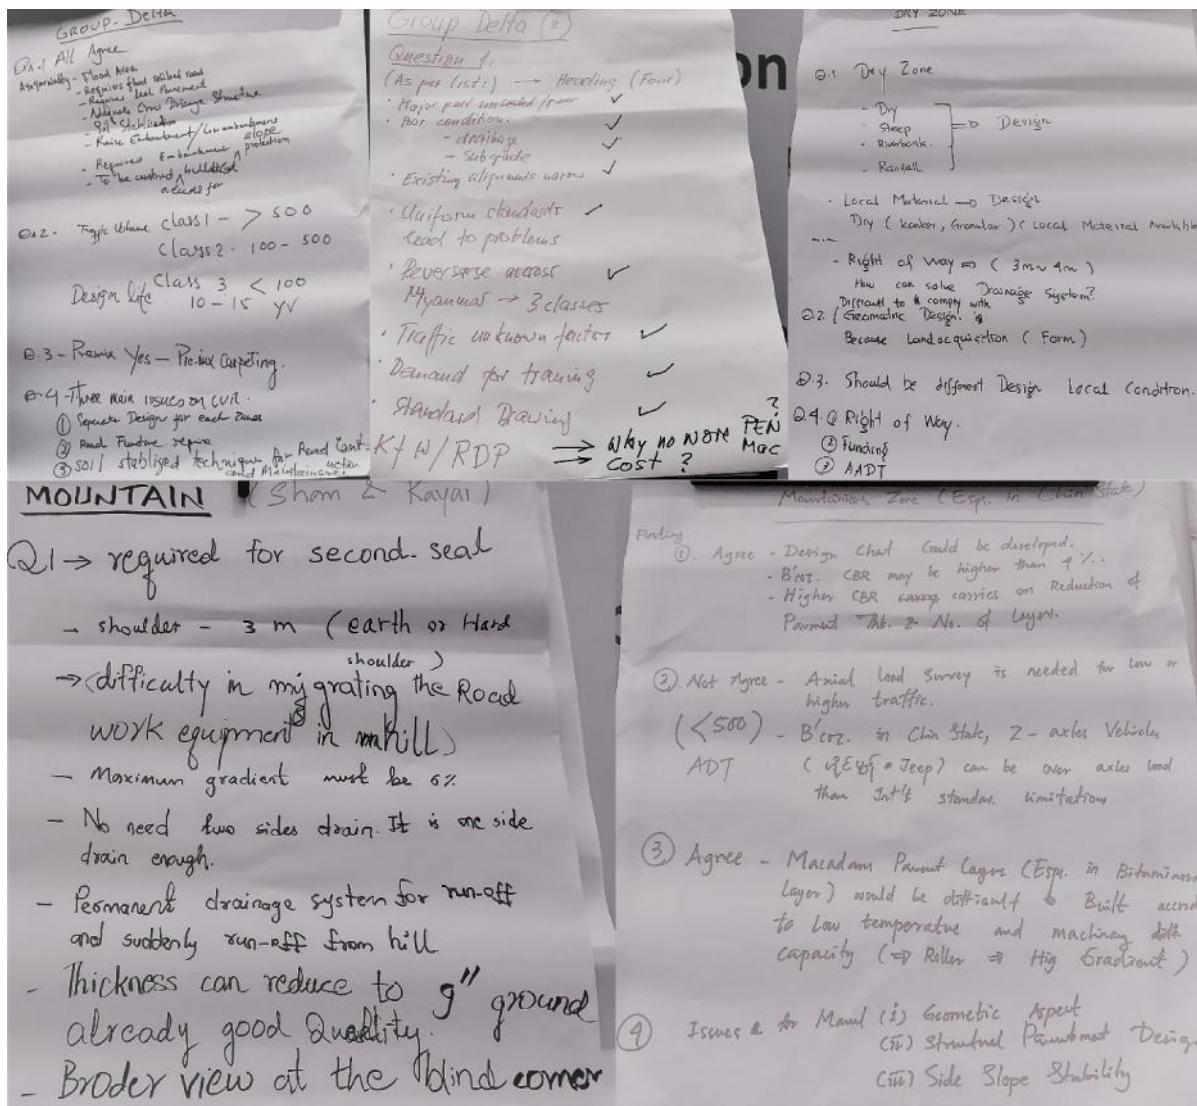 GROUP - Delta
Qn.1 All Agree
- Flood Area
- Requires flood resilient road
- Requires Seal Pavement
- Adequate Cross Drainage Structure
- Soil Stabilization
- Raise Embankment / Low embankment
- Required Embankment slope protection
- To be
access for
Qn.2 - Traffic Volume class 1 - > 500
Class 2 - 100 - 500
Class 3 < 100
Design life 10 - 15 yr
Q.3 - Premix Yes - Premix Carpeting.
Q.4 - Three main issues on LVR.
① Separate Design for each Zones
② Road Funding require
③ Soil stablised technique for Road Const-
ruction and Maintainance.
Group Delta (2)
Question 1.
(As per list:) → Heading (Four)
• Major part unsealed / poor ✓
• Poor condition. ✓
- drainage ✓
- Subgrade
• Existing alignments narrow ✓
• Uniform standards ✓
lead to problems
• Reversense accross ✓
Myanmar → 3 classes
• Traffic unknown factor ✓
• Demand for training ✓
• Standard Drawing ✓
KfW/RDP ⇒ Why no more PEN Mac ?
⇒ Cost ?
on
DRY ZONE
Q.1 Dry Zone
- Dry
- Steep
- Riverbank. ⇒ Design
- Rainfall
• Local Material → Design
Dry (kankar, Granular) (Local Material Available
- Right of Way ⇒ (3m ~ 4m)
How can solve Drainage System?
Difficult to comply with
Q.2. (Geomatric Design.
Because Landacquisition (Farm)
Q.3. Should be different Design Local Condition.
Q.4. ① Right of Way.
② Funding
③ AADT
MOUNTAIN (Shan & Kayar)
Q1 → required for second-seal
→ shoulder - 3 m (earth or Hard
shoulder)
→ (difficulty in migrating the Road
work equipments in hill)
- Maximum gradient must be 6%
- No need two sides drain. It is one side
drain enough.
- Permanent drainage system for run-off
and suddenly run-off from hill
- Thickness can reduce to 9" ground
already good Quality.
- Broder view at the blind corner
Mountainous Zone (Esps. in Chin State)
Finding
①. Agree - Design Chart Could be developed.
- B'coz. CBR may be higher than 9%.
- Higher CBR carries on Reduction of
Pavment Tht. & No. of Layers.
②. Not Agree - Axial Load Survey is needed for low or
higher traffic.
(<500) - B'coz. in Chin State, 2 - axles Vehicles
ADT
Jeep) can be over axles load
than Int'l standar. limitation
③ Agree - Macadam Pavmnt Layers (Esps. in Bituminous
layer) would be difficult to Built accord
to Low temperatue and machinery
capacity (⇒ Roller ⇒ Hig Gradient)
④ Issues for Maml (i) Geometic Aspect
(ii) Structual Pavntmnt Design
(iii) Side Slope Stability